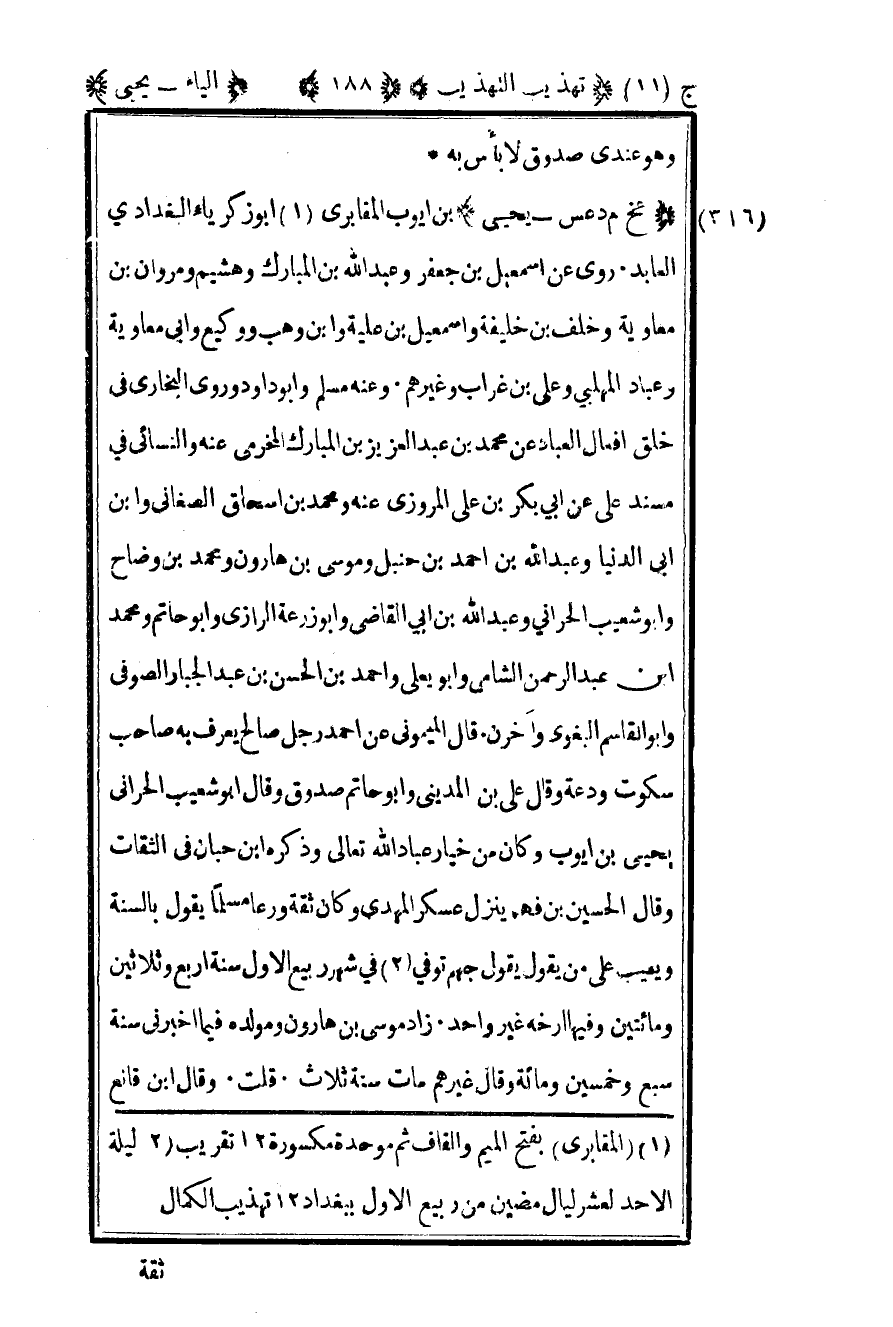 ج (١١) ﴿ تهذيب التهذيب ﴾ ﴿ ١٨٨ ﴾ ﴿ الياء ـ يحيى ﴾
وهو عندى صدوق لا بأس به *
(٣١٦) ﴿ عخ م د عس ـ يحيى ﴾ بن ايوب المقابرى (١) ابو زكرياء البغدادي
العابد ٠ روى عن اسمعيل بن جعفر وعبدالله بن المبارك وهشيم ومروان بن
معاوية وخلف بن خليفة واسمعيل بن علية وابن وهب ووكيع وابي معاوية
وعباد المهلبي وعلى بن غراب وغيرهم ٠ وعنه مسلم وابو داود وروى البخارى فى
خلق افعال العباد عن محمد بن عبد العزيز بن المبارك المخرمى عنه والنسائى في
مسند على عن ابي بكر بن على المروزى عنه ومحمد بن اسحاق الصغانى وابن
ابى الدنيا وعبدالله بن احمد بن حنبل وموسى بن هارون ومحمد بن وضاح
وابو شعيب الحراني وعبدالله بن ابي القاضى وابو زرعة الرازى وابو حاتم ومحمد
ابن عبد الرحمن الشامى وابو يعلى واحمد بن الحسن بن عبد الجبار الصوفى
وابو القاسم البغوى وآخرن ٠ قال الميمونى عن احمد رجل صالح يعرف به صاحب
سكوت ودعة وقال على بن المدينى وابو حاتم صدوق وقال ابو شعيب الحرانى
يحيى بن ايوب وكان من خيار عباد الله تعالى وذكره ابن حبان فى الثقات
وقال الحسين بن فهم ينزل عسكر المهدى وكان ثقة ورعا مسلمًا يقول بالسنة
ويعيب على من يقول يقول جهم توفي (٢) في شهر ربيع الاول سنة اربع وثلاثين
ومائتين وفيها ارخه غير واحد ٠ زاد موسى بن هارون ومولده فيما اخبرنى سنة
سبع وخمسين ومائة وقال غيرهم مات سنة ثلاث ٠ قلت ٠ وقال ابن قانع
(١) (المقابرى) بفتح الميم والقاف ثم موحدة مكسورة ١٢ تقريب (٢ ليلة
الاحد لعشر ليال مضين من ربيع الاول ببغداد ١٢ تهذيب الكمال
ثقة